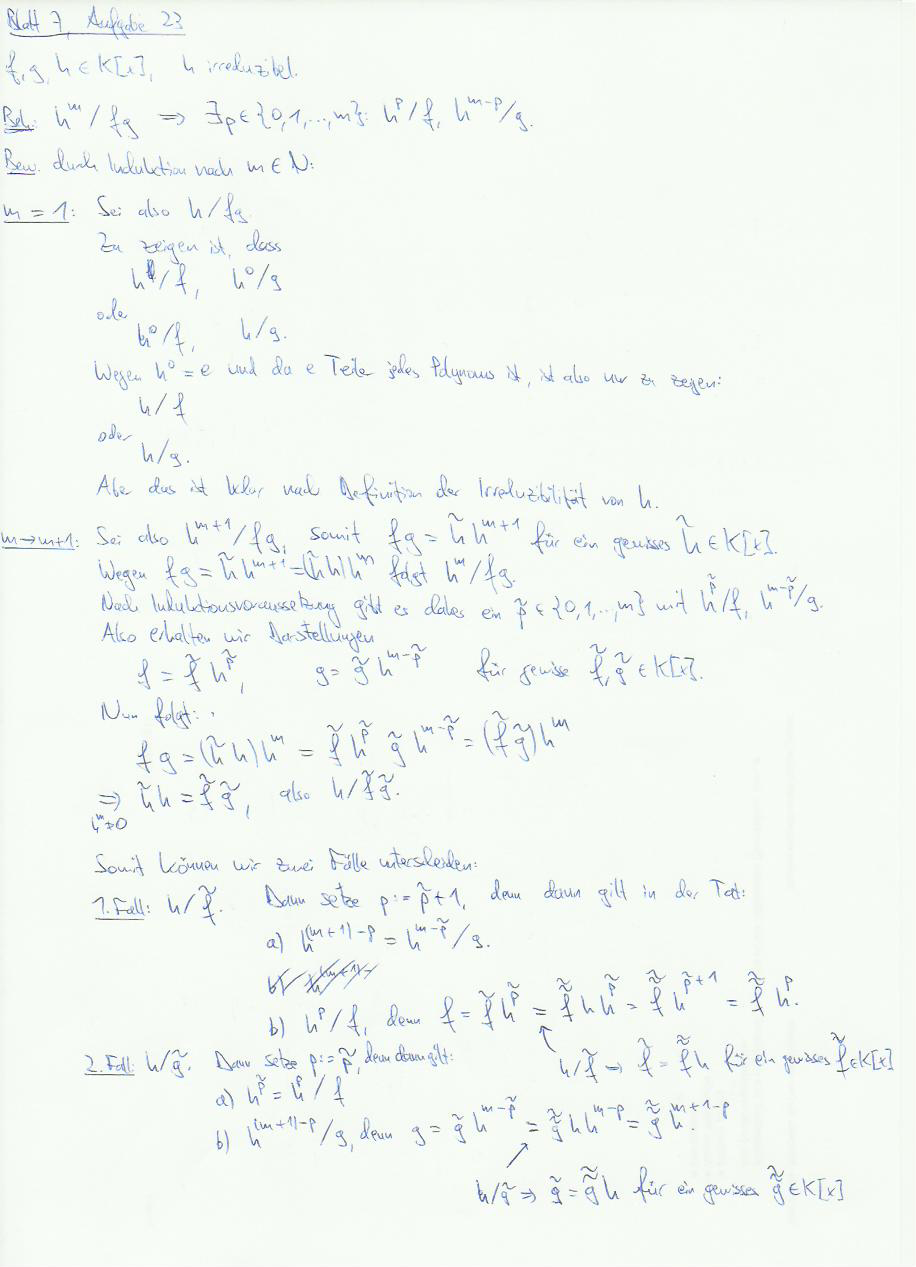 Blatt 7, Aufgabe 23
f, g, h ∈ K[x], h irreduzibel.
Beh: h^m / fg ⟹ ∃p ∈ {0, 1, ..., m}: h^p / f, h^(m-p) / g.
Bew. durch Induktion nach m ∈ N:
m = 1: Sei also h / fg.
Zu zeigen ist, dass
h^1 / f, h^0 / g
oder
h^0 / f, h / g.
Wegen h^0 = e und da e Teiler jedes Polynoms ist, ist also nur zu zeigen:
h / f
oder
h / g.
Aber das ist klar nach Definition der Irreduzibilität von h.
m → m+1: Sei also h^(m+1) / fg, somit fg = h̃ h^(m+1) für ein gewisses h̃ ∈ K[x].
Wegen fg = h̃ h^(m+1) = (h̃ h) h^m folgt h^m / fg.
Nach Induktionsvoraussetzung gibt es daher ein p̃ ∈ {0, 1, .., m} mit h^p̃ / f, h^(m-p̃) / g.
Also erhalten wir Darstellungen
f = f̃ h^p̃, g = g̃ h^(m-p̃) für gewisse f̃, g̃ ∈ K[x].
Nun folgt:
fg = (h̃ h) h^m = f̃ h^p̃ g̃ h^(m-p̃) = (f̃ g̃) h^m
⟹ h̃ h = f̃ g̃, also h / f̃ g̃.
h^m ≠ 0
Somit können wir zwei Fälle unterscheiden:
1. Fall: h / f̃. Dann setze p := p̃ + 1, denn dann gilt in der Tat:
a) h^((m+1)-p) = h^(m-p̃) / g.
b) h^p / f, denn f = f̃ h^p̃ = f̃̃ h h^p̃ = f̃̃ h^(p̃+1) = f̃̃ h^p.
h / f̃ ⟹ f̃ = f̃̃ h für ein gewisses f̃̃ ∈ K[x]
2. Fall: h / g̃. Dann setze p := p̃, denn dann gilt:
a) h^p̃ = h^p / f
b) h^((m+1)-p) / g, denn g = g̃ h^(m-p̃) = g̃̃ h h^(m-p) = g̃̃ h^(m+1-p).
h / g̃ ⟹ g̃ = g̃̃ h für ein gewisses g̃̃ ∈ K[x]